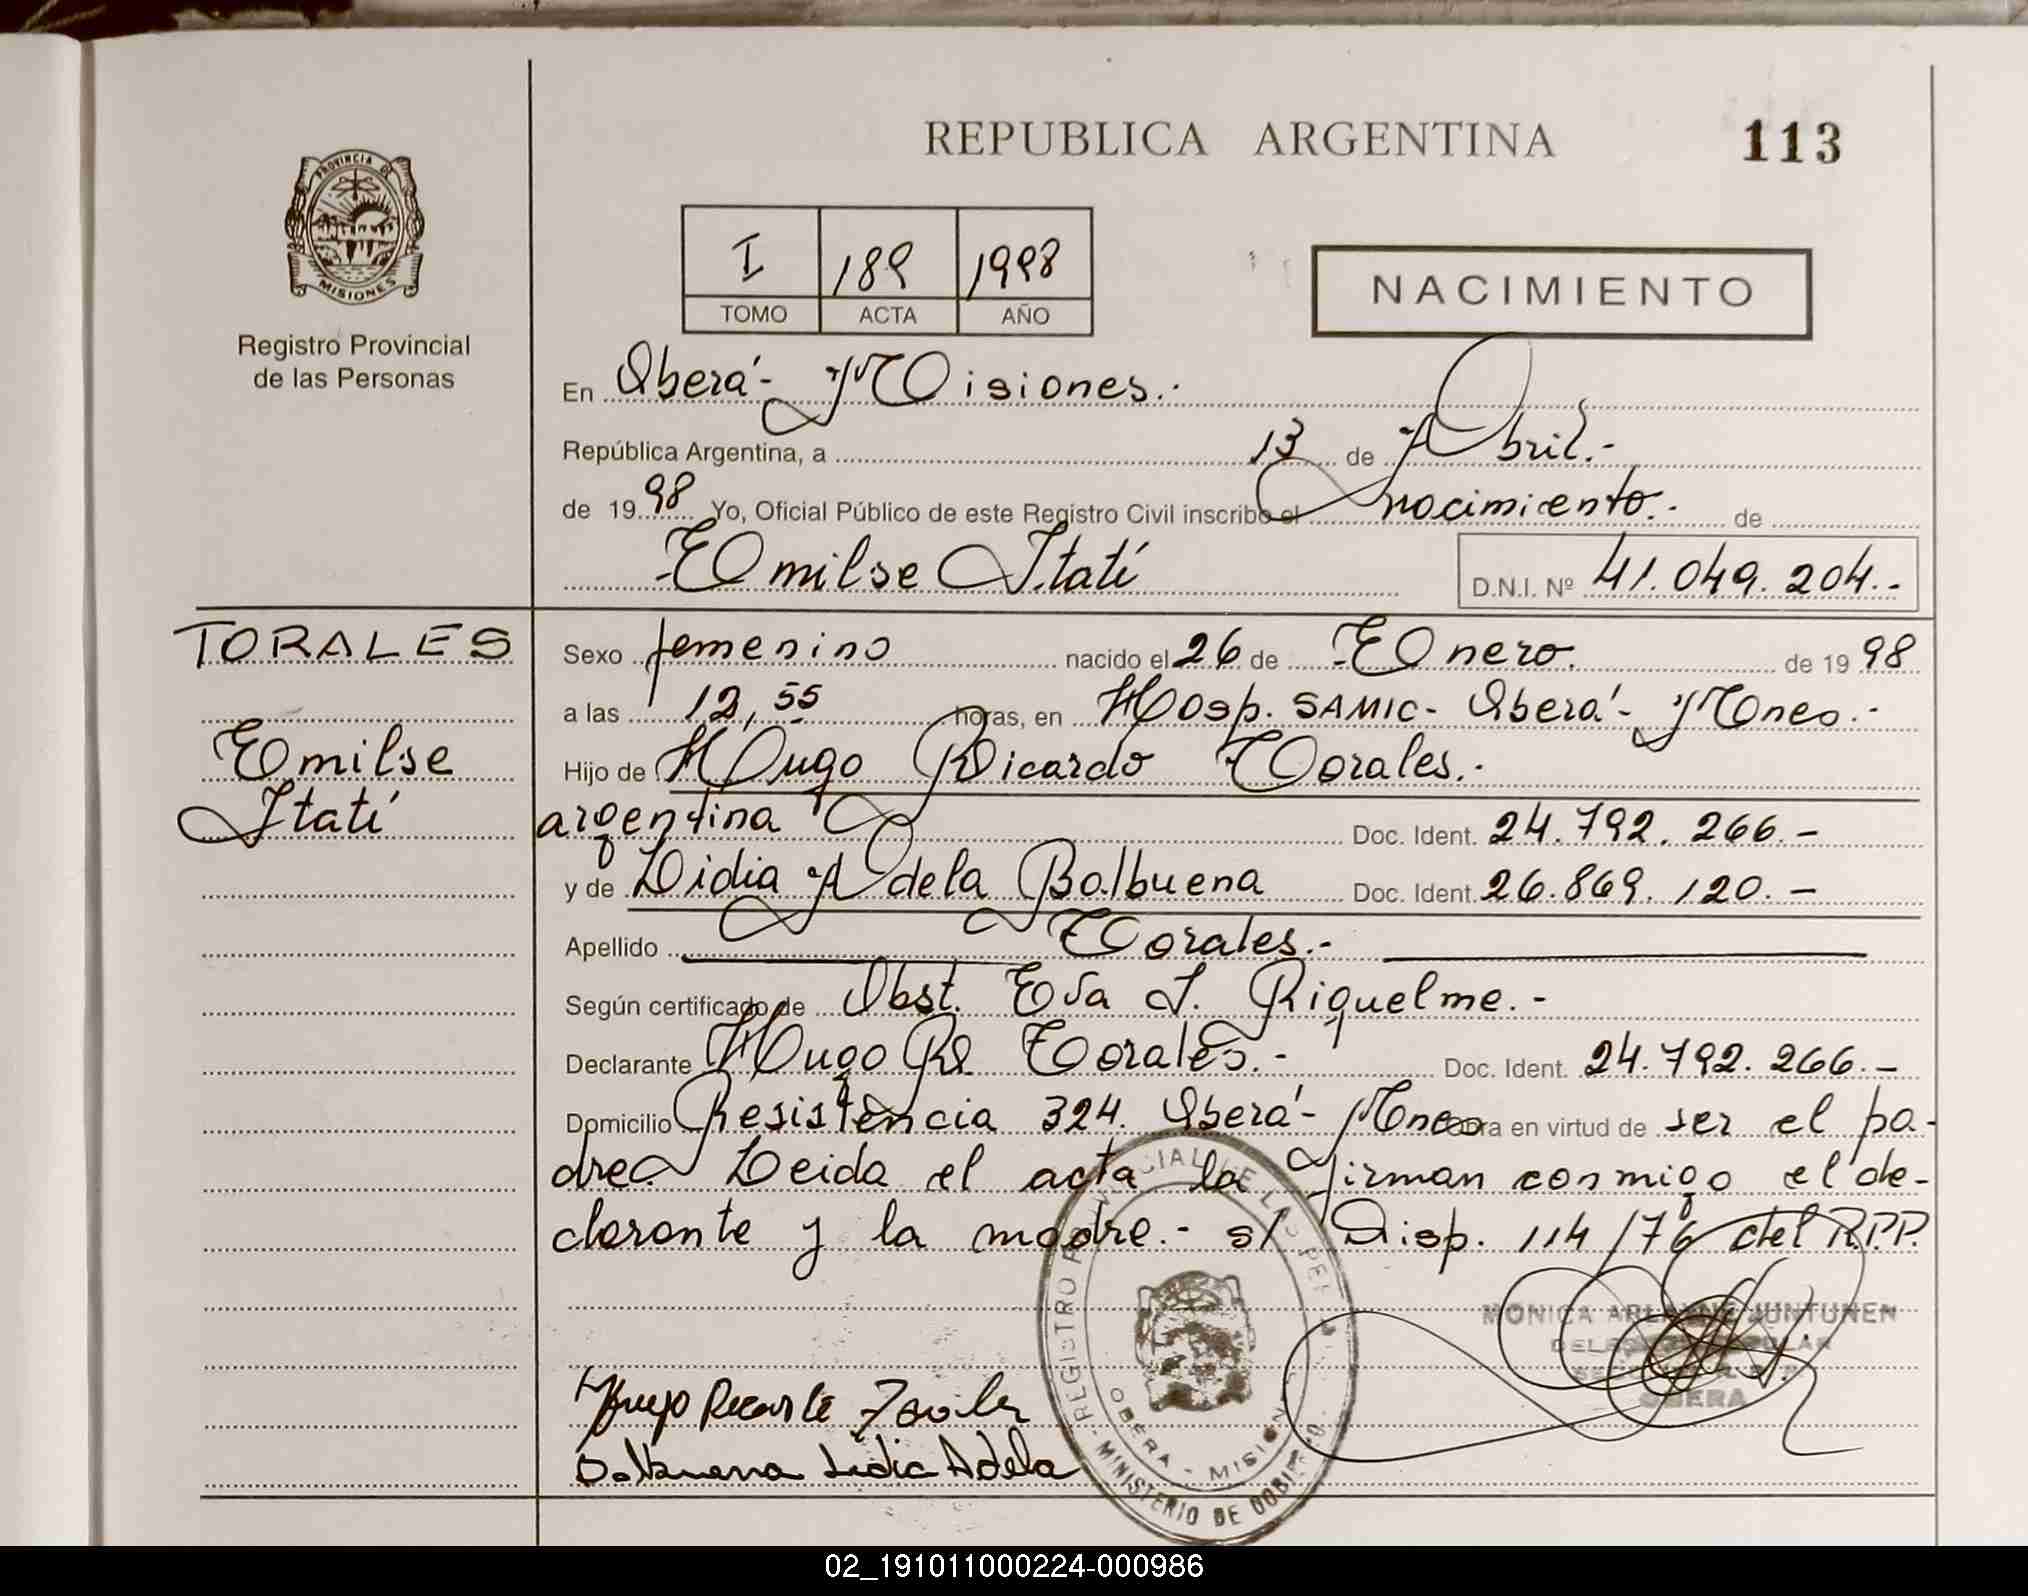 REPUBLICA ARGENTINA
113
PROVINCIA DE
MISIONES
Registro Provincial
de las Personas
I 189 1998
TOMO ACTA AÑO
NACIMIENTO
En Oberá- Misiones.-
República Argentina, a 13 de Abril.-
de 1998 Yo, Oficial Público de este Registro Civil inscribo el nacimiento.- de
Emilse Itatí D.N.I. Nº 41.049.204.-
TORALES
Emilse
Itatí
Sexo femenino nacido el 26 de Enero. de 1998
a las 12,55 horas, en Hosp. SAMIC- Oberá- Mnes.-
Hijo de Hugo Ricardo Torales.-
argentina Doc. Ident. 24.792.266.-
y de Lidia Adela Balbuena Doc. Ident. 26.869.120.-
Apellido Torales.-
Según certificado de Obst. Eva I. Riquelme.-
Declarante Hugo R. Torales.- Doc. Ident. 24.792.266.-
Domicilio Resistencia 324. Oberá- Mnes Obra en virtud de ser el pa-
dre. Leida el acta la firman conmigo el de-
clarante y la madre.- s/ Disp. 114/76 del R.P.P.
MONICA JUNTUNEN
OBERA
Hugo Ricardo
Balbuena Lidia Adela
REGISTRO PROVINCIAL DE LAS PER
OBERA - MISIONES
MINISTERIO DE GOBIERNO
02_191011000224-000986